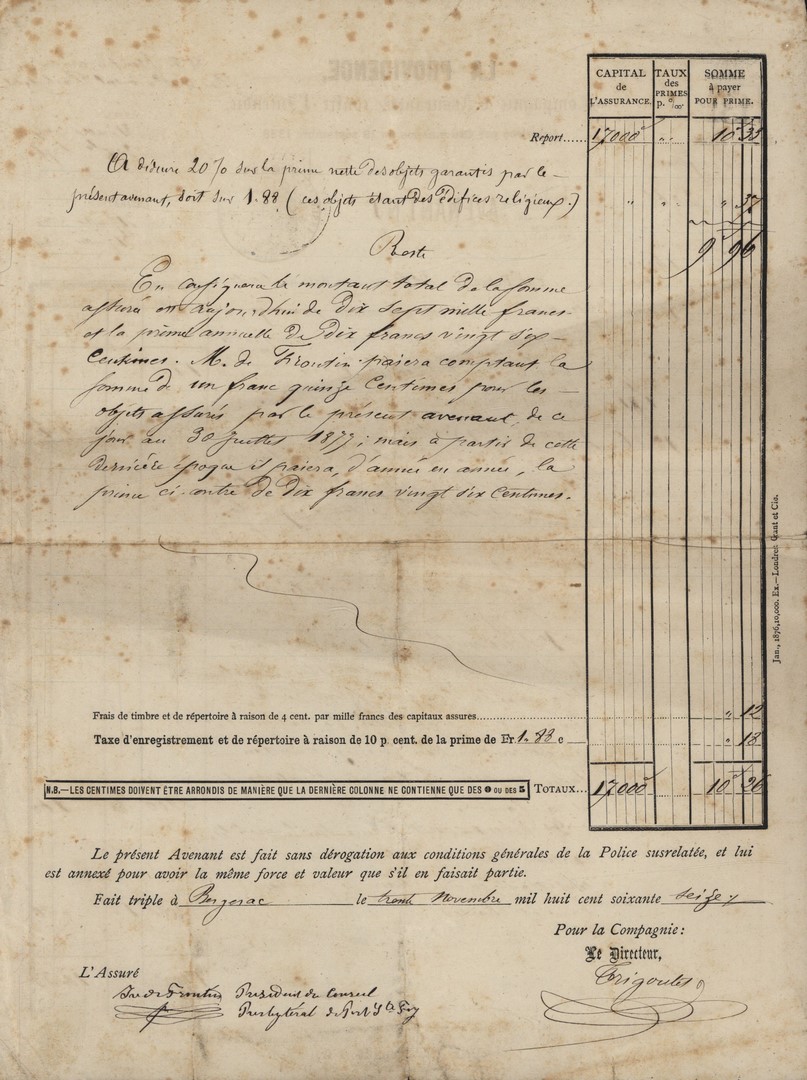 CAPITAL
de
L'ASSURANCE.
TAUX
des
PRIMES
p. %/00.
SOMME
à payer
POUR PRIME.
Report..... 17000 " " 10 33
A déduire 20 % sur la prime nette des objets garantis par le
présent avenant, soit sur 1.88 (ces objets étant des édifices religieux.) " " " 37
9 96
Reste
En conséquence le montant total de la somme
assurée est aujourd'hui de dix sept mille francs
et la prime annuelle de dix francs vingt six
Centimes. M. de Frontin paiera comptant la
somme de un franc quinze Centimes pour les
objets assurés par le présent avenant, de ce
jour au 30 Juillet 1877; mais à partir de cette
dernière époque il paiera, d'année en année, la
prime ci-contre de dix francs vingt six Centimes.
Jan., 1876, 10,000. Ex.—Londres: Gant et Cie.
Frais de timbre et de répertoire à raison de 4 cent. par mille francs des capitaux assures..... " 12
Taxe d'enregistrement et de répertoire à raison de 10 p. cent. de la prime de Fr. 1.88 c " 18
N.B.—LES CENTIMES DOIVENT ÊTRE ARRONDIS DE MANIÈRE QUE LA DERNIÈRE COLONNE NE CONTIENNE QUE DES 0 OU DES 5 TOTAUX... 17000 10 26
Le présent Avenant est fait sans dérogation aux conditions générales de la Police susrelatée, et lui
est annexé pour avoir la même force et valeur que s'il en faisait partie.
Fait triple à Bergerac le trente Novembre mil huit cent soixante seize
Pour la Compagnie:
Le Directeur,
L'Assuré
Frontin Président du Conseil
Presbytéral de Port Ste Foy